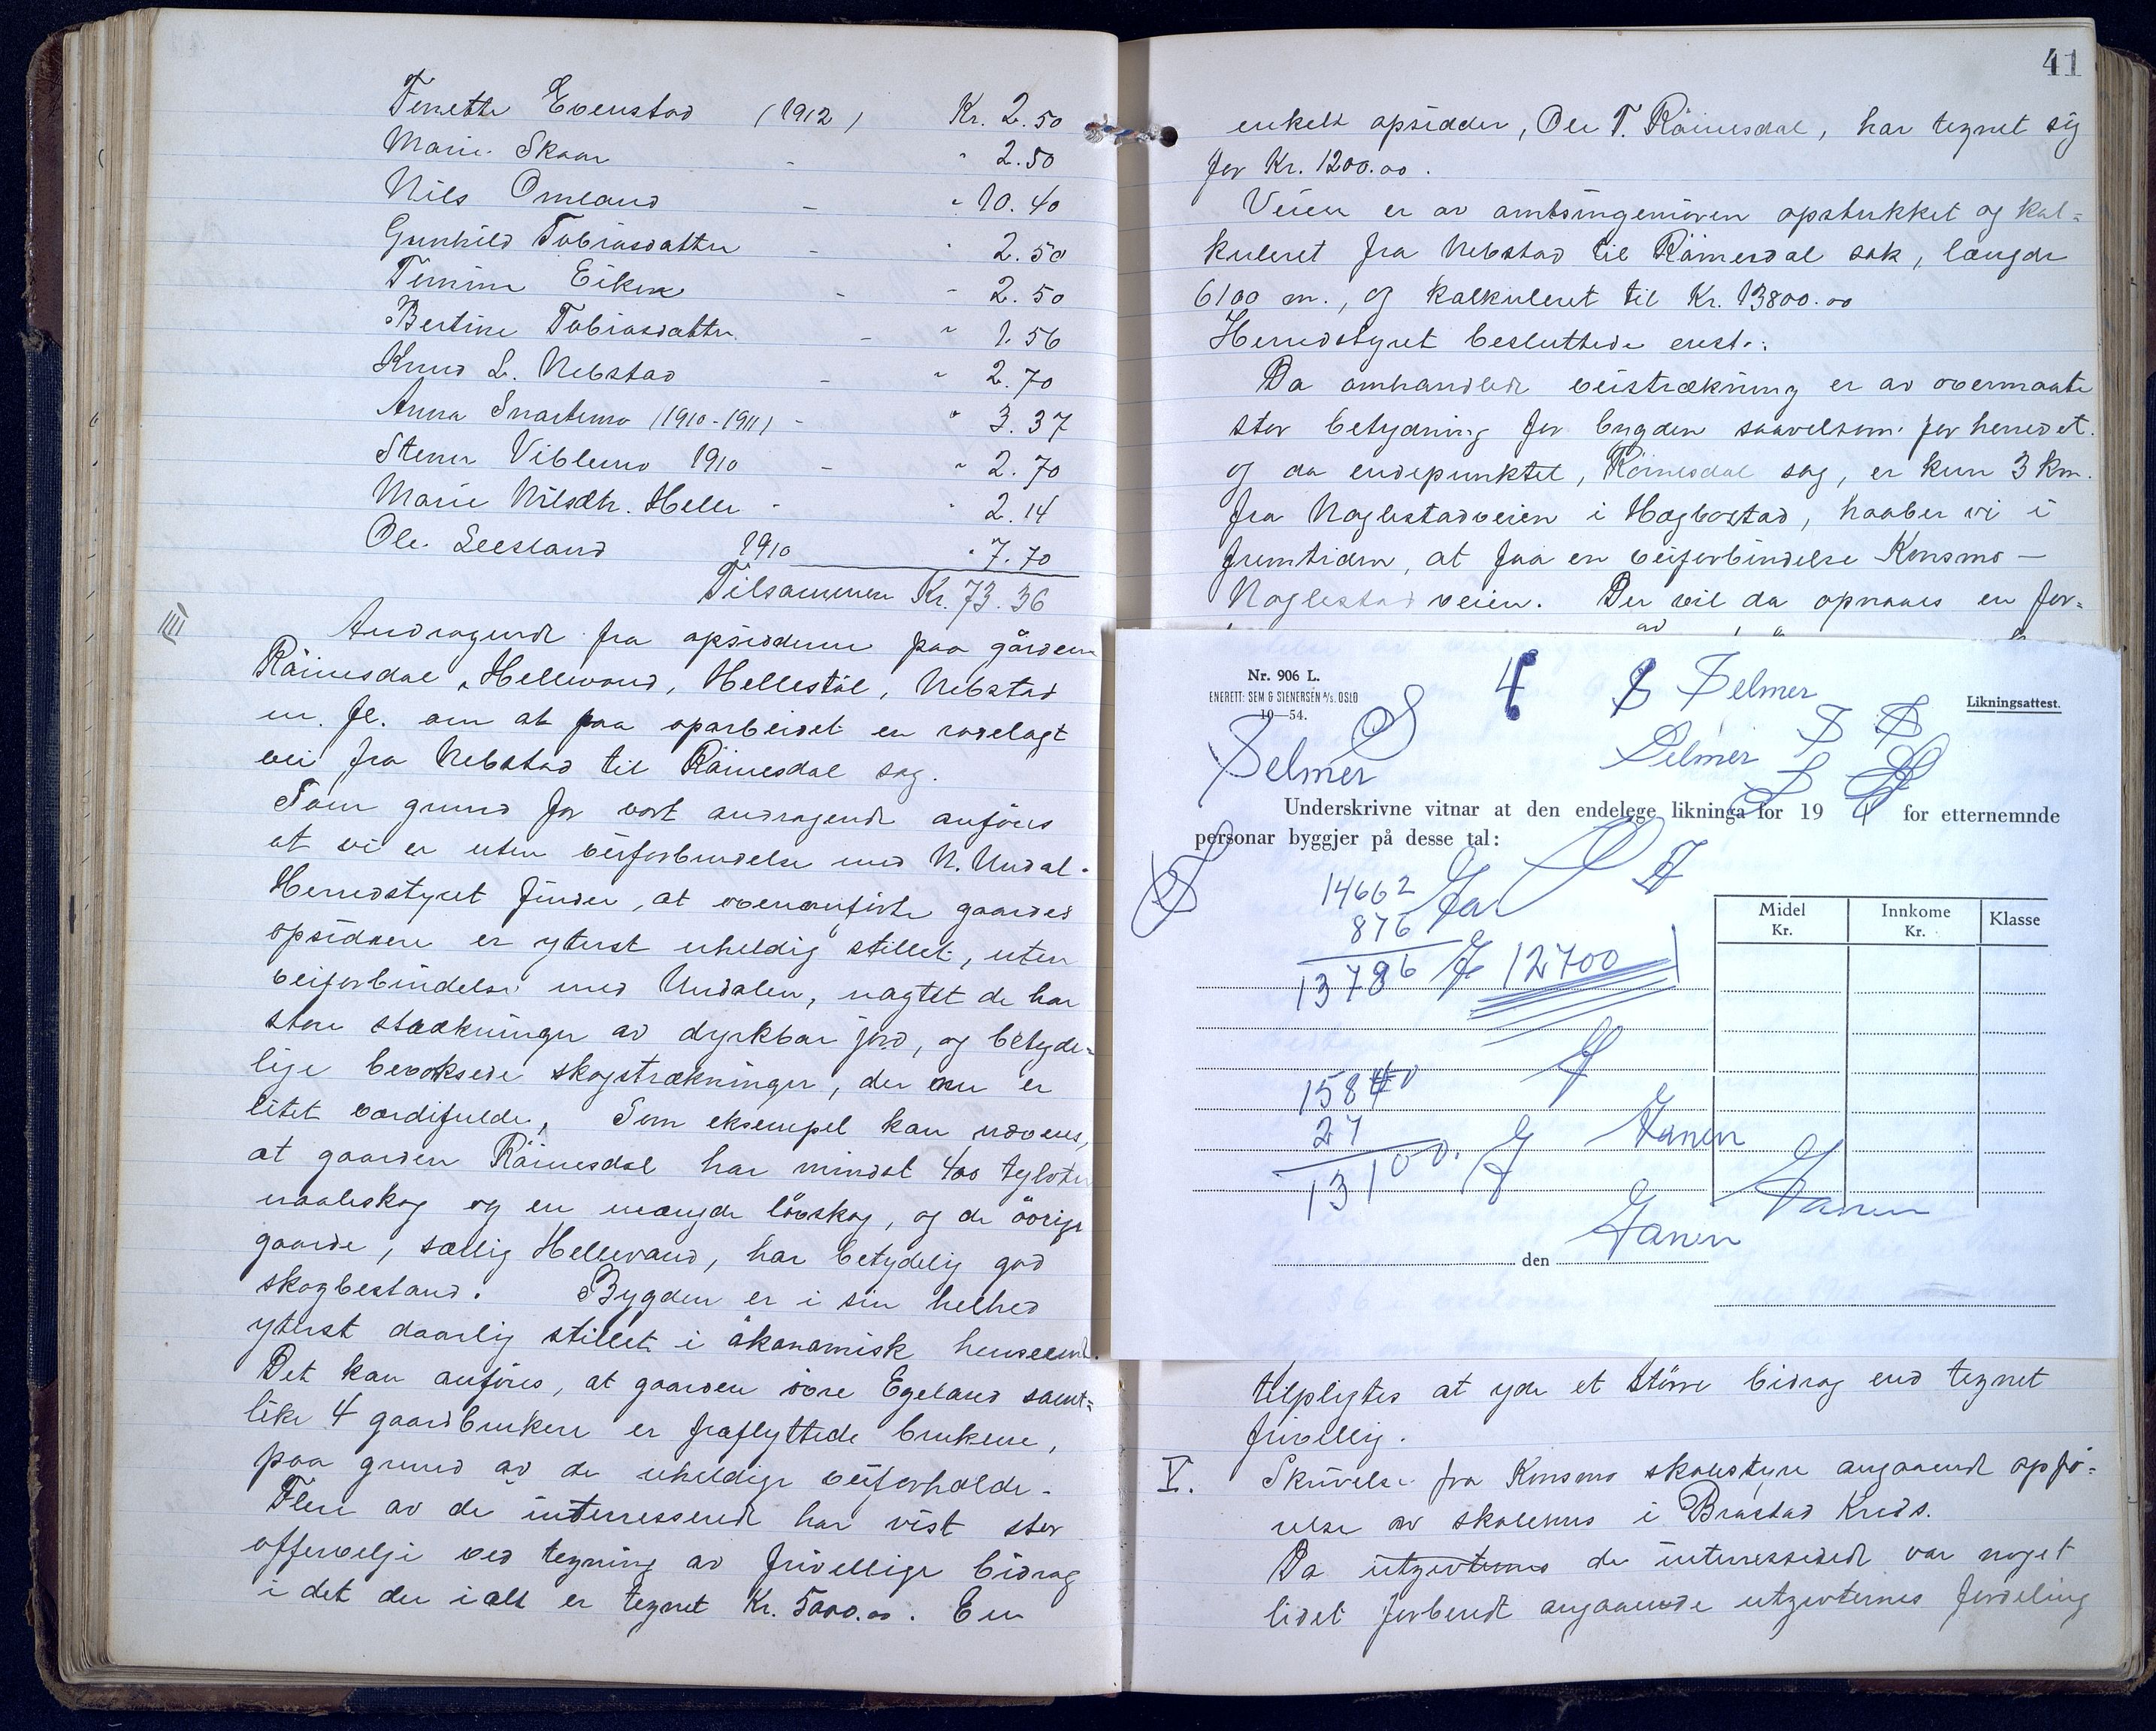 Tenette Evenstad (1912) Kr. 2.50
Marie Skaar - " 2.50
Nils Omland - " 10.40
Gunhild Tobiasdatter - " 2.50
Timine Eiken - - 2.50
Bertine Tobiasdatter - " 1.56
Knud L. Nebstad - " 2.70
Anna Snartemo (1910-1911) - " 3.37
Stener Viblemo 1910 - " 2.70
Marie Nilsdtr. Helle - " 2.14
Ole Leesland 1910 " 7.70
Tilsammen Kr. 73.36
IIII
Andragende fra opsidderne paa gårdene
Råinesdal, Hellevand, Hellestöl, Nebstad
m. fl. om at faa oparbeidet en rodelagt
vei fra Nebstad til Råinesdal sag.
Som grund for vort andragende anföres
at vi er uten veiforbindelse med N. Undal.
Herredstyret finder, at ovenanförte gaardes
opsiddere er yterst uheldig stillet, uten
veiforbindelse med Undalen, uagtet de har
store strækninger av dyrkbar jord, og betyde=
lige bevoksede skogstrækninger, der nu er
litet værdifulde, Som eksempel kan nævnes,
at gaarden Råinesdal har mindst 400 tylvter
naaleskog og en mængde lövskog, og de övrige
gaarde, særlig Hellevand, har betydelig god
skogbestand. Bygden er i sin helhed
yterst daarlig stillet i åkonomisk henseende.
Det kan anföres, at gaarden övre Egeland samt=
like 4 gaardbrukere er fraflyttede brukene,
paa grund av de uheldige veiforholde.
Flere av de interesserede har vist stor
offervilje ved tegning av frivillige bidrag
i det der i alt er tegnet Kr. 5000.00. En
41
enkelt opsidder, Ole T. Råinesdal, har tegnet sig
for Kr. 1200.00.
Veien er av amtsingeniören opstukket og kal=
kuleret fra Nebstad til Råinesdal sak, længde
6100 m., og kalkuleret til Kr. 13800.00
Herredstyret besluttede enst.:
Da omhandlede veistrækning er av overmaate
stor betydning for bygden saavelsom for herredet.
og da endepunktet, Råinesdal sag, er kun 3 km.
fra Naglestadveien i Hægbostad, haaber vi i
fremtiden, at faa en veiforbindelse Konsmo -
Naglestadveien. Der vil da opnaaes en for=
Nr. 906 L.
ENERETT: SEM & STENERSEN A/S. OSLO
10—54.
4 S Selmer
Likningsattest.
Selmer
Selmer
Underskrivne vitnar at den endelege likninga for 19 4 for etternemnde
personar byggjer på desse tal:
14662
876
13786 12700
Midel Kr. Innkome Kr. Klasse
15840
27
13100.
Janen
Janen
Janen
den
tilpligtes at yde et större bidrag end tegnet
frivillig.
V. Skrivelse fra Konsmo skolestyre angaaende opfö=
relse av skolehus i Brastad Kreds.
Da utgivternes de interesserede var noget
lidet forberedt angaaende utgivternes fordeling